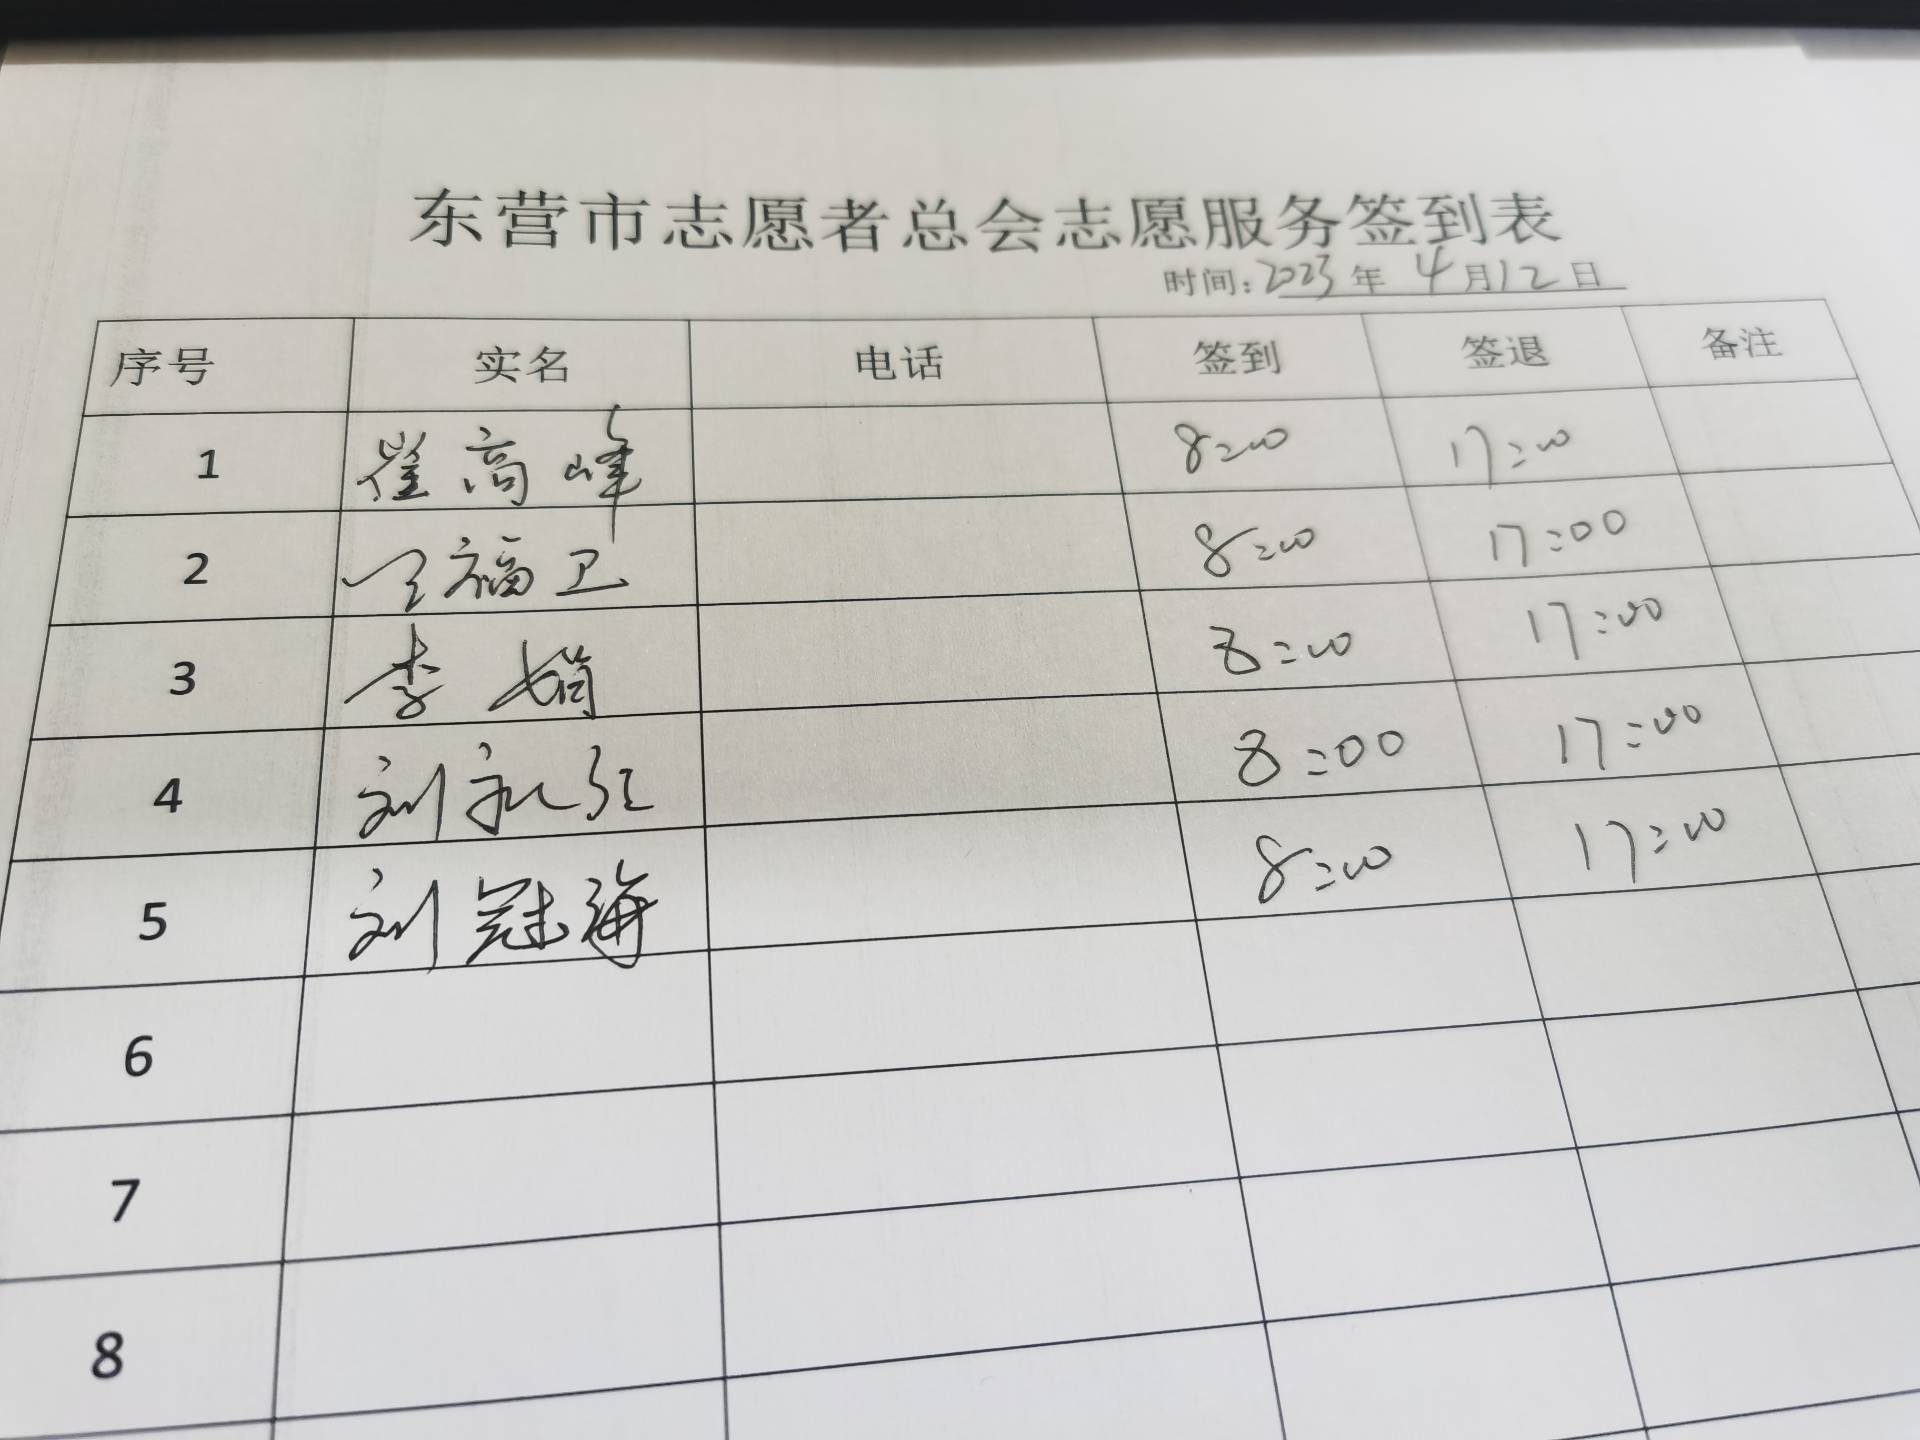 东营市志愿者总会志愿服务签到表
时间:2023年 4月12日
序号 实名 电话 签到 签退 备注
1 崔高峰 8:00 17:00
2 福卫 8:00 17:00
3 李娟 8:00 17:00
4 刘永红 8:00 17:00
5 刘冠海 8:00 17:00
6
7
8